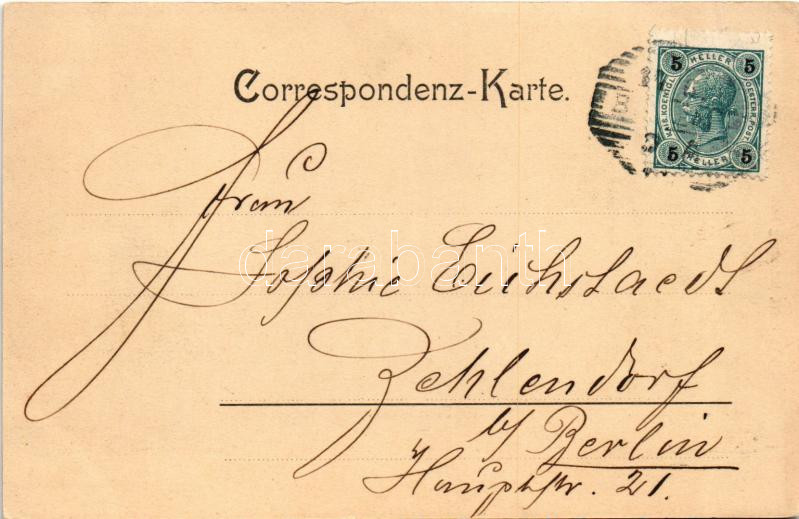 Correspondenz-Karte.
5 HELLER 5
KAIS. KOENIGL. OESTERR. POST.
5 HELLER 5
Frau
Sophie Eichstaedt
Zehlendorf
b/ Berlin
Hauptstr. 21.
darabanth